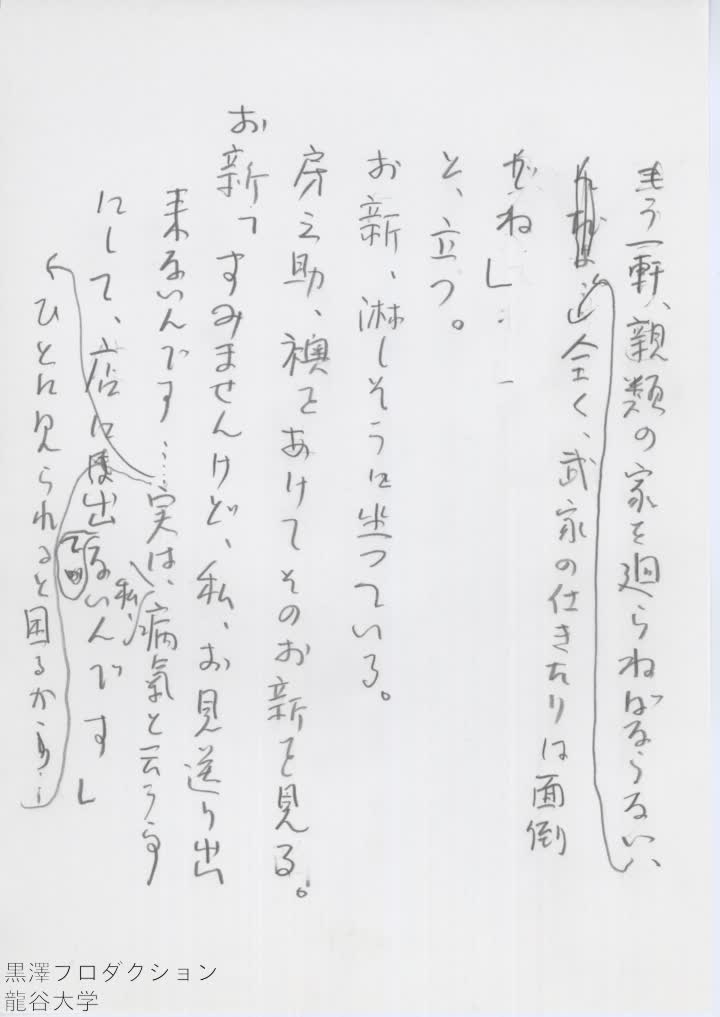 もう一軒、親類の家を廻らねばならない
全く、武家の仕きたりは面倒
がね」
と、立つ。
お新、淋しそうに坐っている。
房之助、襖をあけてそのお新を見る。
お新「すみませんけど、私、お見送り出
来ないんです……実は、私、病気と云う事
にして、店には出ないんです」
ひとに見られると困るから…」
黒澤プロダクション
龍谷大学